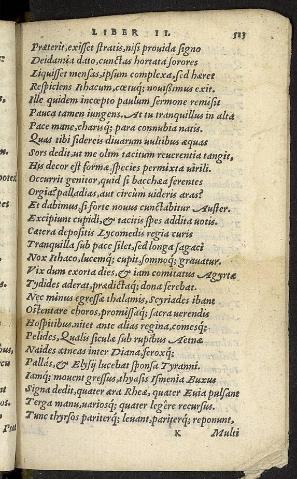 LIBER II. 513
Præterit, exisset stratis, nisi prouida signo
Deidamia dato, cunctas hortata sorores
Liquisset mensas, ipsum complexa, sed hæret
Respiciens Ithacum, cœtuq; nouissimus exit.
Ille quidem incœpto paulum sermone remisit
Pauca tamen iungens. At tu tranquillus in alta
Pace mane, charisq; para connubia natis.
Quas tibi sidereis diuarum uultibus æquas
Sors dedit, ut me olim tacitum reuerentia tangit,
Hijs decor est formæ, species permixta uirili.
Occurrit genitor, quid si bacchæa ferentes
Orgia? palladias, aut circum uideris aras?
Et dabimus, si forte nouus cunctabitur Auster.
Excipiunt cupidi, & tacitis spes addita uotis.
Cætera depositis Lycomedis regia curis
Tranquilla sub pace silet, sed longa sagaci
Nox Ithaco, lucemq; cupit, somnoq; grauatur.
Vix dum exorta dies, & iam comitatus Agyrtæ
Tydides aderat, prædictaq; dona ferebat.
Nec minus egressæ thalamis, Scyriades ibant
Ostentare choros, promissaq; sacra uerendis
Hospitibus. nitet ante alias regina, comesq;
Pelides, Qualis siculæ sub rupibus Aetnæ
Naides ætneas inter Diana, feroxq;
Pallas, & Elysij lucebat sponsa Tyranni.
Iamq; mouent gressus, thyasis Ismenia Buxus
Signa dedit, quater æra Rheæ, quater Euia pulsant
Terga manu, uariosq; quater legêre recursus.
Tunc thyrsos pariterq; leuant, pariterq; reponunt,
K Multi